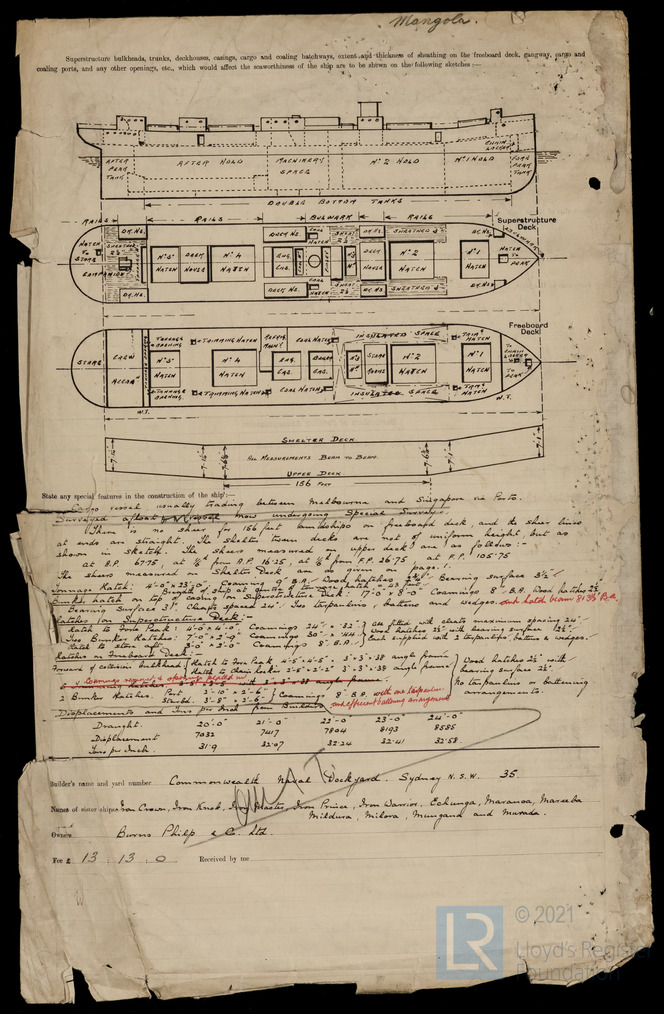 Mangola.
Superstructure bulkheads, trunks, deckhouses, casings, cargo and coaling hatchways, extent and thickness of sheathing on the freeboard deck, gangway, cargo and
coaling ports, and any other openings, etc., which would affect the seaworthiness of the ship are to be shewn on the following sketches :—
AFTER PEAK TANK
AFTER HOLD
MACHINERY SPACE
Nº 2 HOLD
Nº 1 HOLD
CHAIN LOCKER
FORE PEAK TANK
DOUBLE BOTTOM TANKS
RAILS
RAILS
BULWARK
RAILS
Superstructure Deck
BULWARK
HATCH TO STORE
COMPANION
DK. HS.
SHEATHED
Nº 5 HATCH
DECK HOUSE
Nº 4 HATCH
DECK HS
COAL HATCH
ENG. CAS.
DK. HS.
SHEATHED
DECK HOUSE
Nº 2 HATCH
Nº 1 HATCH
HATCH TO PEAK
DK. HS.
DECK HS
DK. HS
SHEATHED
DK. HS.
Freeboard Deck
STORE
CREW ACCOM.
TONNAGE OPENING
TRIMMING HATCH
COAL HATCH
INSULATED SPACE
TRIMG HATCH
Nº 5 HATCH
Nº 4 HATCH
ENG. CAS.
BOILER CAS.
STORE ROOMS
Nº 2 HATCH
Nº 1 HATCH
TO CHAIN LOCKER
TO PEAK
TONNAGE OPENING
TRIMMING HATCH
COAL HATCH
INSULATED SPACE
TRIMG HATCH
W.T.
W.T.
SHELTER DECK
ALL MEASUREMENTS BEAM TO BEAM.
UPPER DECK
156 FEET
State any special features in the construction of the ship :—
Cargo vessel usually trading between Melbourne and Singapore via Ports.
Surveyed afloat vessel now undergoing Special Survey.
There is no sheer for 156 feet amidships on freeboard deck, and the sheer lines
at ends are straight. The shelter tween decks are not of uniform height, but as
shown in sketch. The sheers measured on upper deck are as follows :-
at A.P. 67.75, at ⅙ from A.P. 16.25, at ⅙ from F.P. 26.75 at F.P. 105.75
The sheers measured on Shelter Deck are as given on page 1.
Tonnage Hatch : 4'-0" x 23'-0" Coaming 9" B.A. Wood hatches 2¾" Bearing surface 3½"
Height of ship at centre of tonnage hatch = 43 feet
Bunker hatch on top of casing on Superstructure Deck : 7'-0" x 8'-0" Coamings 8" B.A. Wood hatches 2½"
Bearing Surface 3". Cleats spaced 24". Two tarpaulins, battens and wedges. one hatch beam 8 x 3½ B.A.
Hatches on Superstructure Deck :-
Hatch to Fore Peak : 4'-0" x 4'-0" Coamings 24" x .32
Two Bunker Hatches : 7'-0" x 2'-9" Coamings 30" x .44
Hatch to store aft 3'-0" x 2'-0" Coamings 8" B.A.
are fitted with cleats maximum spacing 24"
Wood hatches 2½" with bearing surface 1½".
Each supplied with 2 tarpaulins, battens & wedges.
Hatches on Freeboard Deck :-
Forward of collision bulkhead
Hatch to Fore Peak 4'-5" x 4'-5" 3" x 3" x .38 angle frame
Hatch to Chain locker 2'-2" x 2'-2" 3" x 3" x .38 angle frame
Coamings removed & openings plated in
2 Bunker Hatches. Port 2'-10" x 2'-6"
Starbd. 3'-8" x 2'-6"
Coamings 8" B.A. with one tarpaulin
and efficient battening arrangements
Wood hatches 2½" with
bearing surface 2½".
No tarpaulins or battening
arrangements.
Displacements and Tons per Inch from Builders
Draught. 20'-0" 21'-0" 22'-0" 23'-0" 24'-0"
Displacement 7032 7417 7804 8193 8585
Tons per Inch. 31.9 32.07 32.24 32.41 32.58
Builder's name and yard number Commonwealth Naval Dockyard. Sydney N.S.W. 35.
Names of sister ships Iron Crown, Iron Knob, Iron Master, Iron Prince, Iron Warrior, Echunga, Maranoa, Mareeba
Mildura, Milora, Mungana and Murada.
Owners Burns Philp & Co. Ltd.
Fee £ 13 : 13 : 0 Received by me
LR
© 2021
Lloyd's Register
Foundation